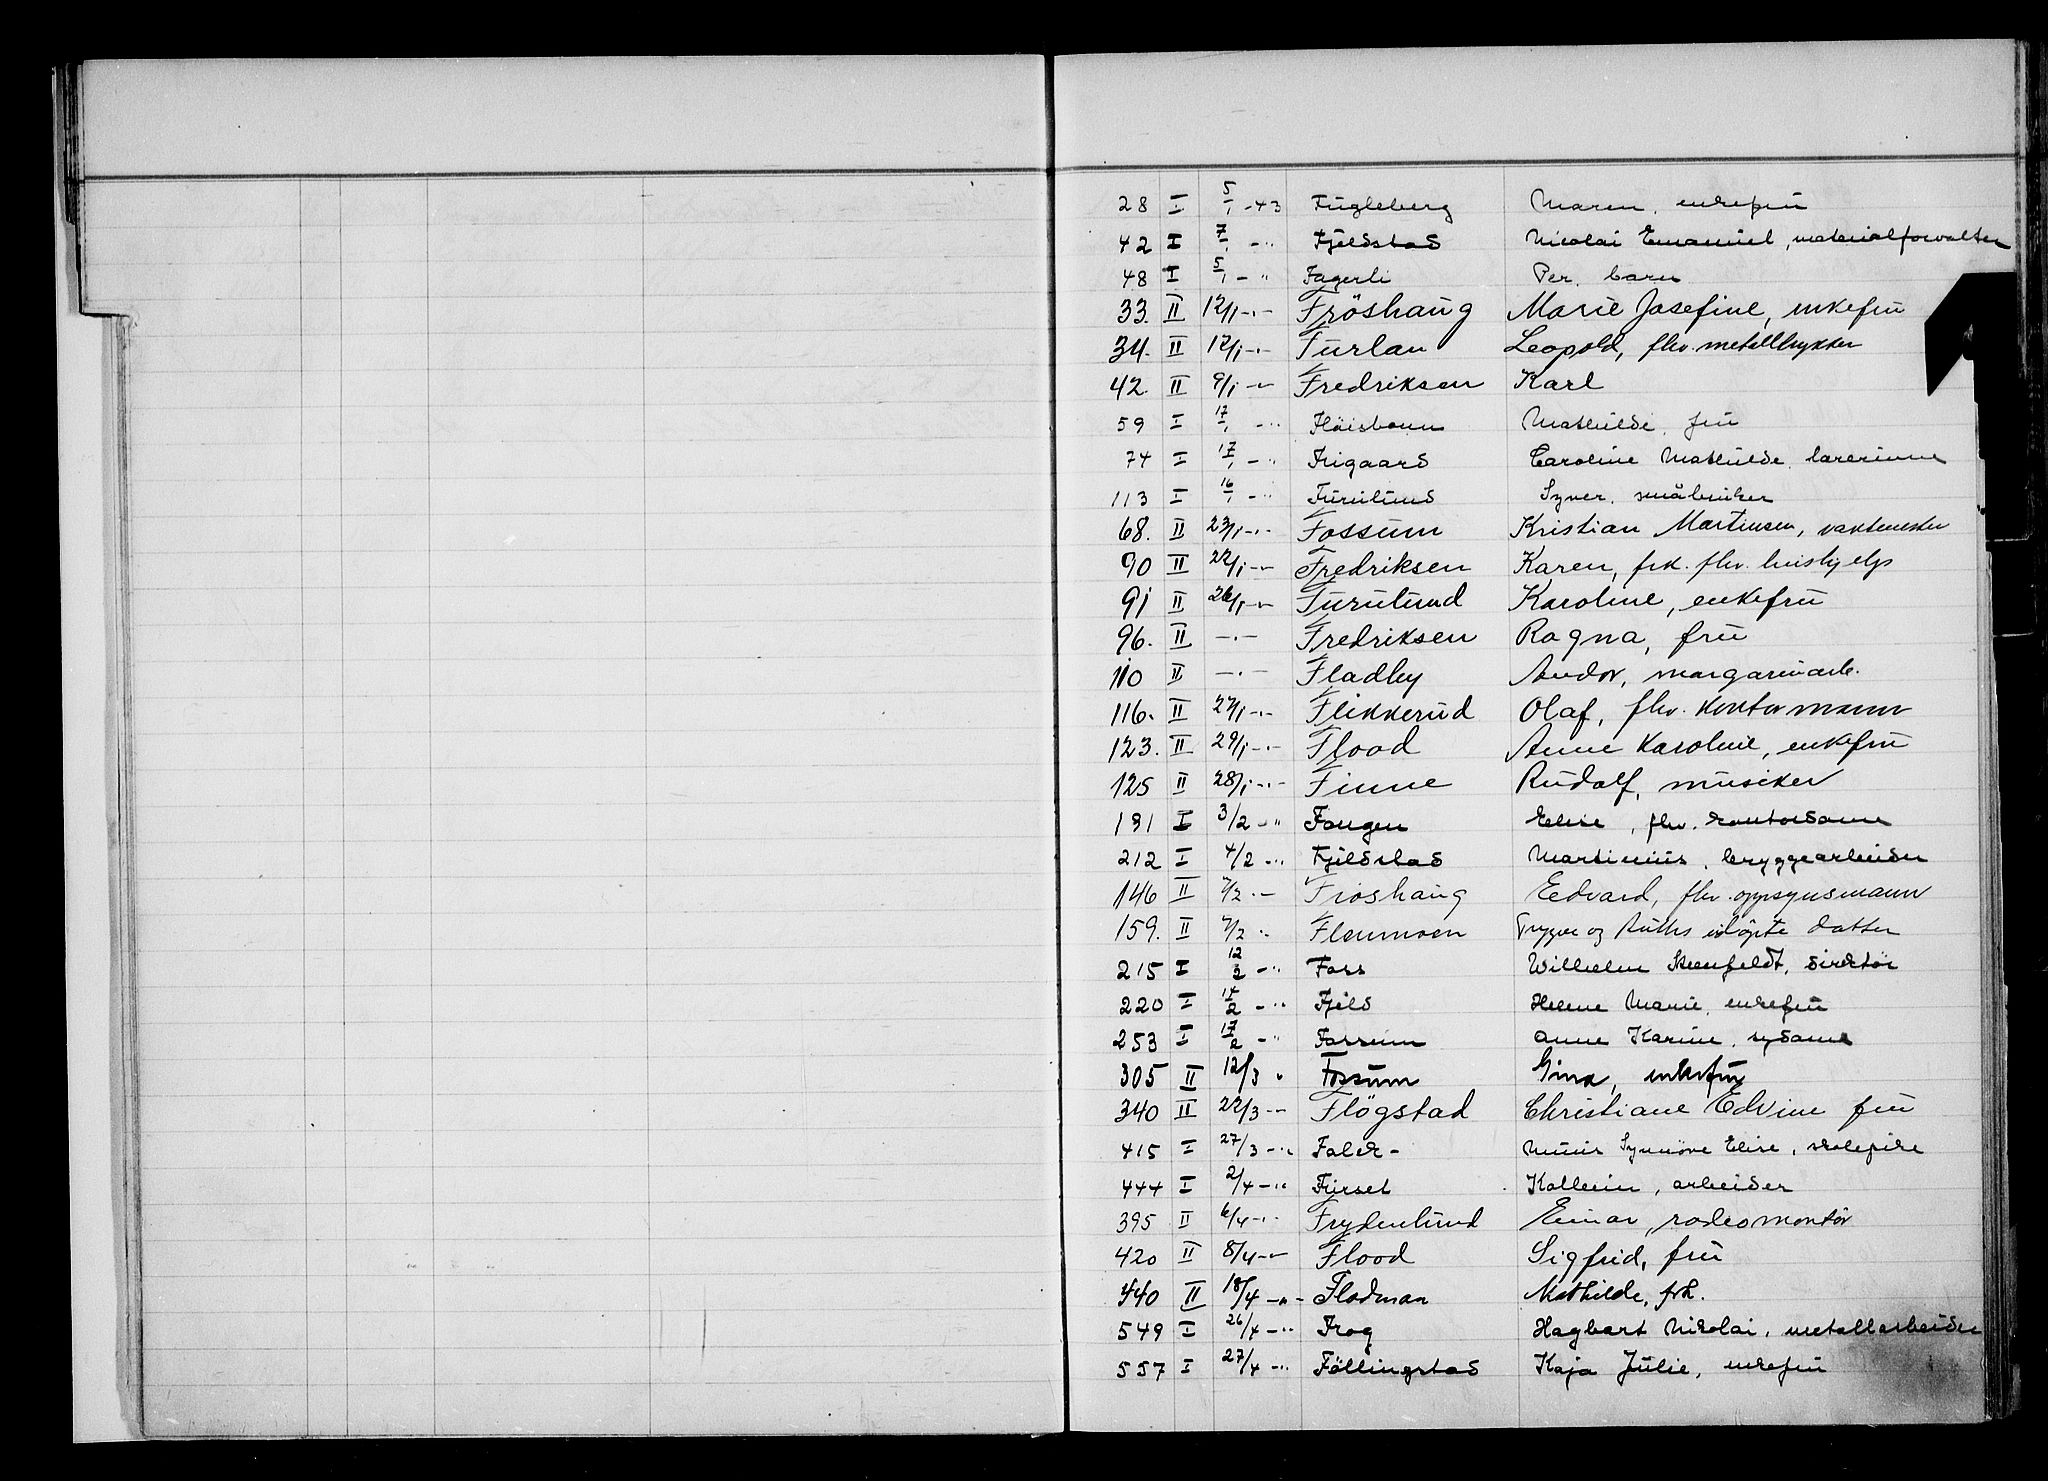 28 I 5/1 -43 Fugleberg Maren, enkefru
42 I 7/1 -" Fjeldstad Nicolai Emanuel, materialforvalter
48 I 5/1 -" Fagerli Per, barn
33. II 12/1 -"- Fröshaug Marie Josefine, enkefru
34. II 12/1 -"- Furlan Leopold, fhv. metalltrykker
42. II 9/1 -"- Fredriksen Karl
59 I 17/1 -" Fløisbonn Mathilde, fru
74 I 17/1 -" Frigaard Caroline Mathilde, lærerinne
113 I 16/1 -" Furulund Syver, småbruker
68. II 23/1 -"- Fossum Kristian Martinsen, vaktmester
90 II 22/1 -"- Fredriksen Karen, frk. fhv. hushjelp
91 II 26/1 -"- Furulund Karoline, enkefru
96. II -"- Fredriksen Ragna, fru
110 II -"- Fladby Andor, margarinarb.
116. II 27/1 -"- Flikkerud Olaf, fhv. kontormann
123. II 29/1 -"- Flood Anne Karoline, enkefru
125 II 28/1 -"- Finne Rudolf, musiker
191 I 3/2 -" Fangen Elise, fhv. kontordame
212 I 4/2 -" Fjeldstad Martinius, bryggearbeider
146 II 7/2 "- Froshaug Edvard, fhv. oppsynsmann
159. II 7/2 " Flenmoen Trygve og Ruths udøpte datter
215 I 12/2 -" Foss Wilhelm Steenfeldt, direktør
220 I 14/2 -" Fjeld Helene Marie, enkefru
253 I 17/2 -" Fossum Anne Karine, sydame
305 II 12/3 " Fossum Gina, enkefru
340 II 22/3 -"- Flögstad Christiane Edvine fru
415 I 27/3 -" Falck- Synnöve Elise, skolepike
444 I 2/4 -" Furset Kolbein, arbeider
395 II 6/4 -"- Frydenlund Einar, radiomontör
420 II 8/4 -"- Flood Sigfrid, fru
440 II 18/4 -"- Flodman Mathilde, frk.
549 I 26/4 -" Frog Hagbart Nikolai, metallarbeider
557 I 27/4 -" Föllingstad Kaja Julie, enkefru